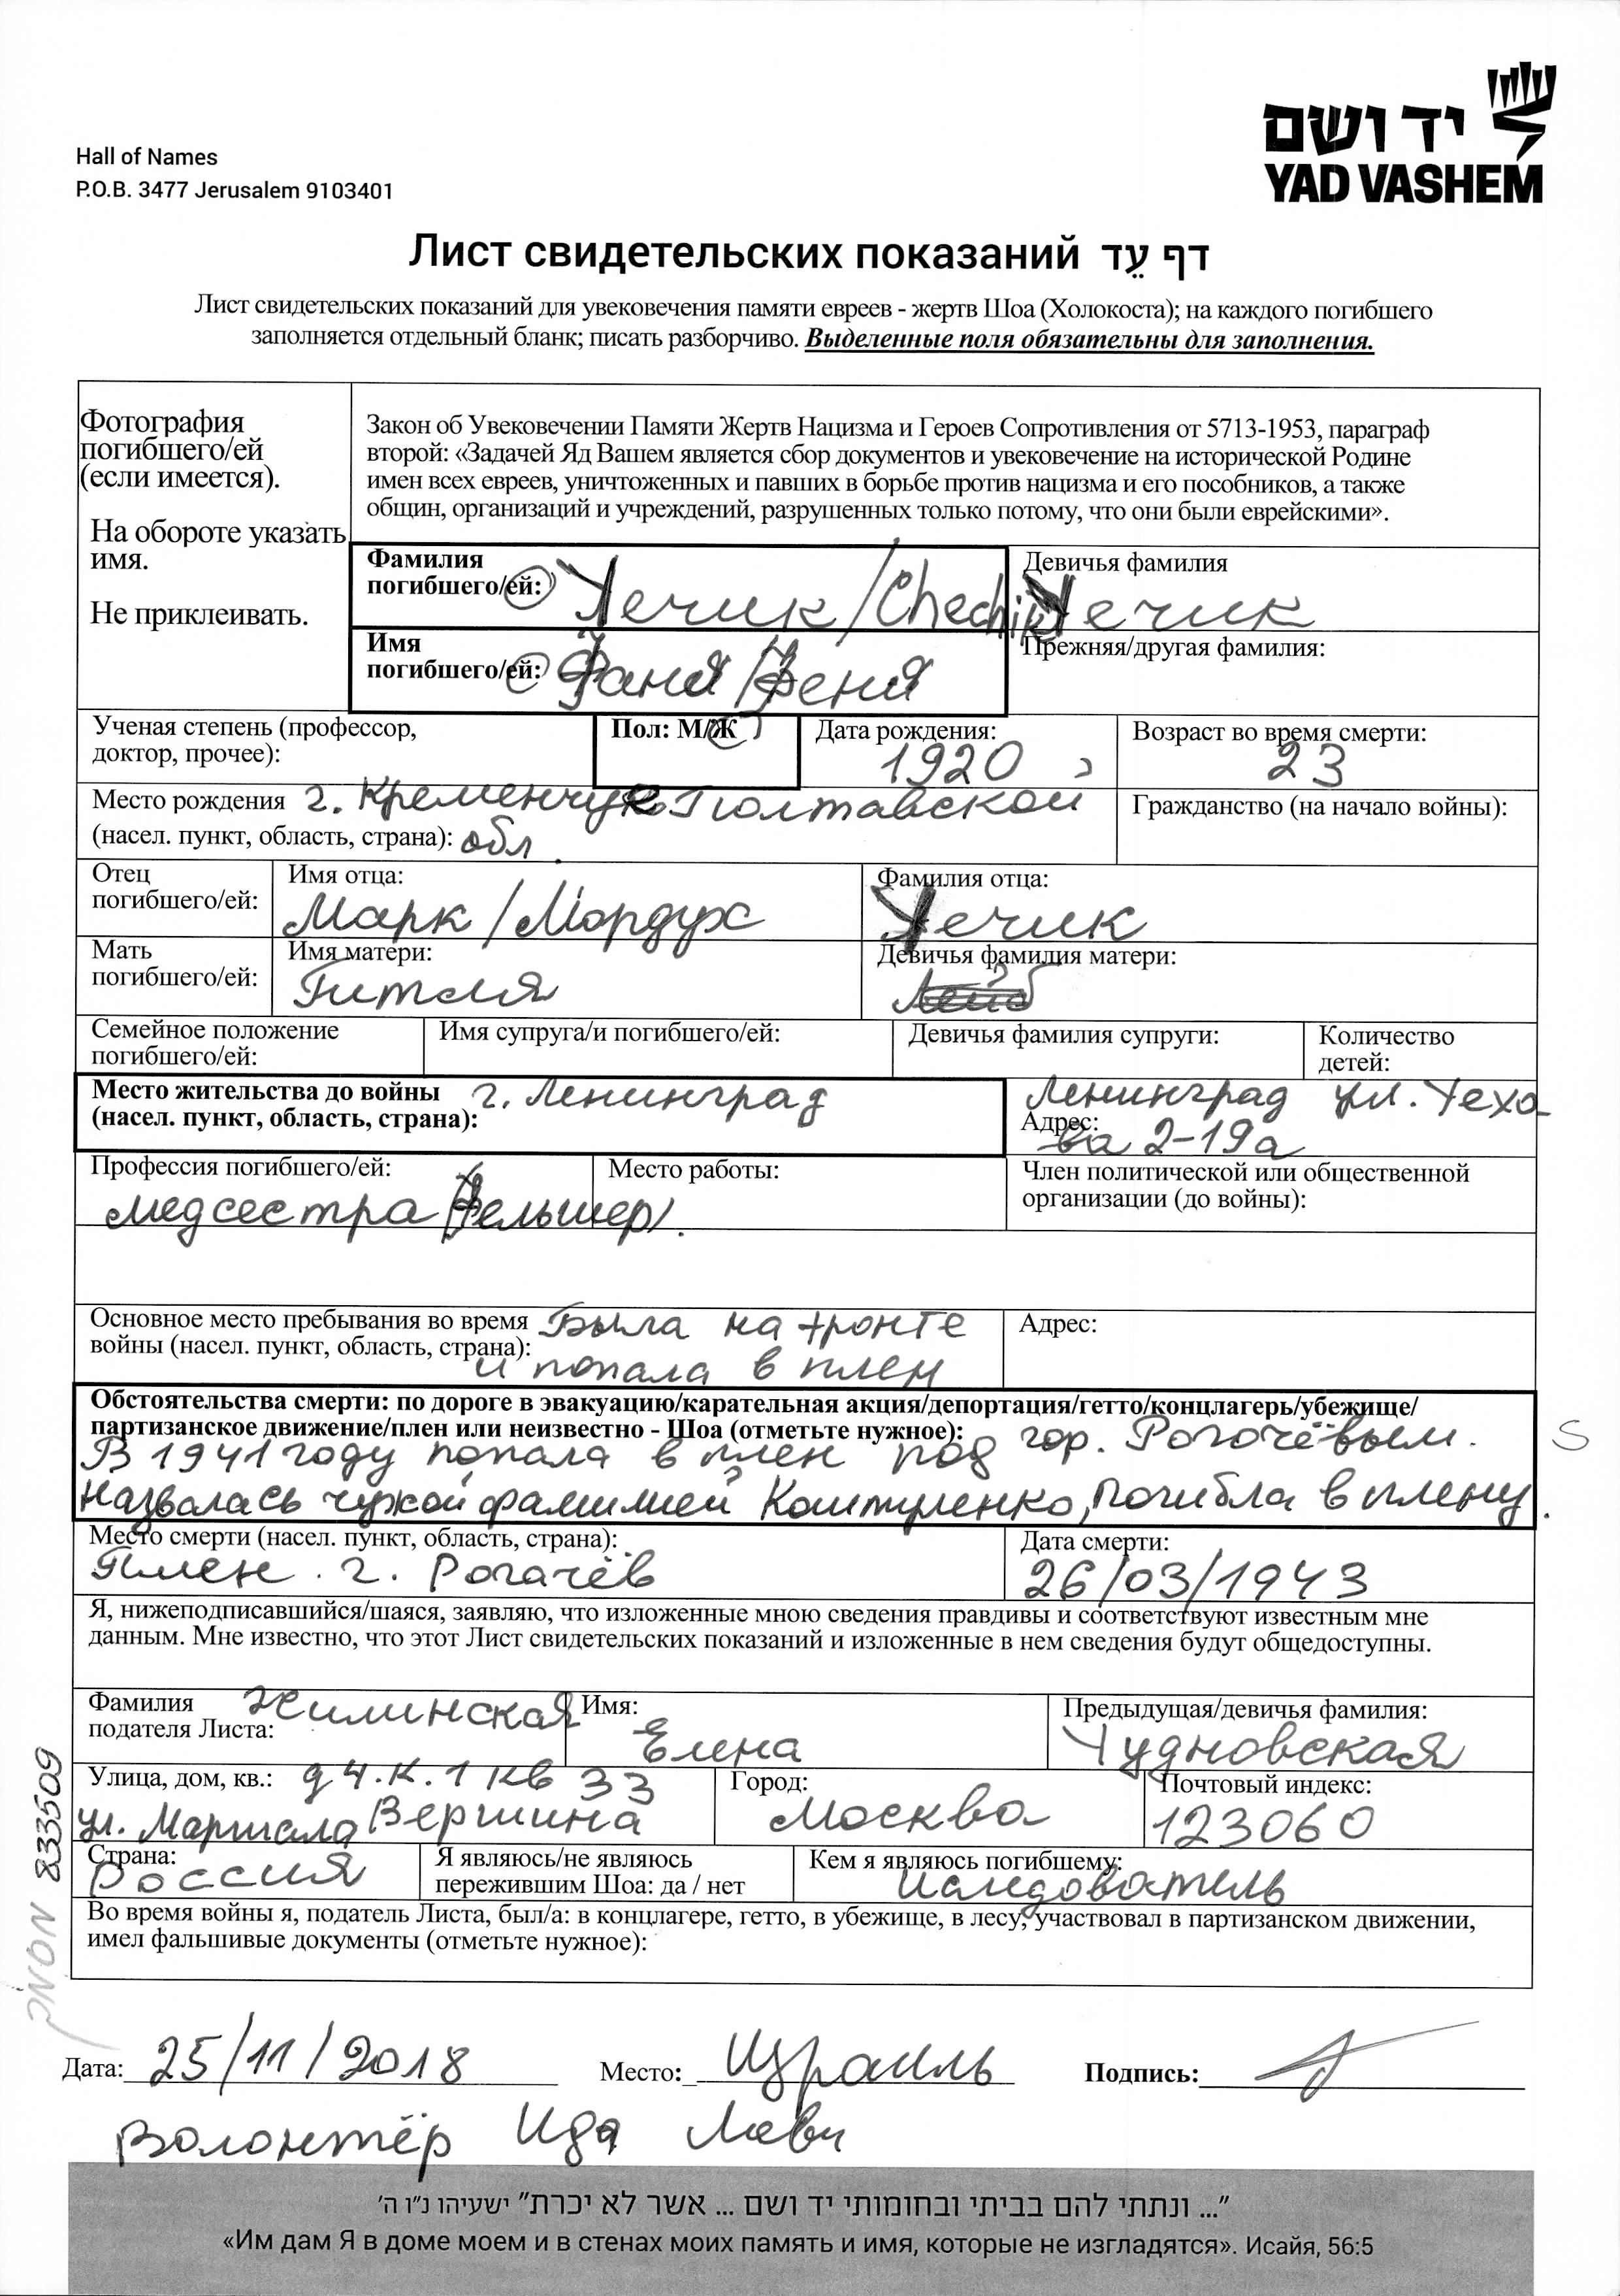 יד ושם
YAD VASHEM
Hall of Names
P.O.B. 3477 Jerusalem 9103401
Лист свидетельских показаний דף עֵד
Лист свидетельских показаний для увековечения памяти евреев - жертв Шоа (Холокоста); на каждого погибшего
заполняется отдельный бланк; писать разборчиво. Выделенные поля обязательны для заполнения.
Фотография
погибшего/ей
(если имеется).
На обороте указать
имя.
Не приклеивать.
Закон об Увековечении Памяти Жертв Нацизма и Героев Сопротивления от 5713-1953, параграф
второй: «Задачей Яд Вашем является сбор документов и увековечение на исторической Родине
имен всех евреев, уничтоженных и павших в борьбе против нацизма и его пособников, а также
общин, организаций и учреждений, разрушенных только потому, что они были еврейскими».
Фамилия
погибшего/ей: Чечик/Chechik
Девичья фамилия
Чечик
Имя
погибшего/ей: Фаня/Феня
Прежняя/другая фамилия:
Ученая степень (профессор,
доктор, прочее):
Пол: М/Ж
Дата рождения:
1920
Возраст во время смерти:
23
Место рождения г. Кременчуг Полтавской
(насел. пункт, область, страна): обл.
Гражданство (на начало войны):
Отец
погибшего/ей:
Имя отца:
Марк/Мордух
Фамилия отца:
Чечик
Мать
погибшего/ей:
Имя матери:
Гитля
Девичья фамилия матери:
Семейное положение
погибшего/ей:
Имя супруга/и погибшего/ей:
Девичья фамилия супруги:
Количество
детей:
Место жительства до войны г. Ленинград
(насел. пункт, область, страна):
Ленинград ул. Чехо
Адрес: ва 2-19а
Профессия погибшего/ей:
медсестра (фельшер).
Место работы:
Член политической или общественной
организации (до войны):
Основное место пребывания во время Была на фронте
войны (насел. пункт, область, страна): и попала в плен
Адрес:
Обстоятельства смерти: по дороге в эвакуацию/карательная акция/депортация/гетто/концлагерь/убежище/
партизанское движение/плен или неизвестно - Шоа (отметьте нужное):
В 1941 году попала в плен под гор. Рогочёвым. S
Назвалась чужой фамилией Коштуренко, погибла в плену.
Место смерти (насел. пункт, область, страна):
Плен. г. Рогачёв
Дата смерти:
26/03/1943
Я, нижеподписавшийся/шаяся, заявляю, что изложенные мною сведения правдивы и соответствуют известным мне
данным. Мне известно, что этот Лист свидетельских показаний и изложенные в нем сведения будут общедоступны.
Фамилия Жилинская
подателя Листа:
Имя:
Елена
Предыдущая/девичья фамилия:
Чудновская
Улица, дом, кв.: д 4. к. 1 кв 33
ул. Маршала Вершина
Город:
Москва
Почтовый индекс:
123060
Страна:
Россия
Я являюсь/не являюсь
пережившим Шоа: да / нет
Кем я являюсь погибшему:
Иследователь
Во время войны я, податель Листа, был/а: в концлагере, гетто, в убежище, в лесу, участвовал в партизанском движении,
имел фальшивые документы (отметьте нужное):
833509
Дата: 25/11/2018 Место: Израиль Подпись:
Волонтёр Ида Леви
"... ונתתי להם בביתי ובחומותי יד ושם ... אשר לא יכרת" ישעיהו נ"ו ה'
«Им дам Я в доме моем и в стенах моих память и имя, которые не изгладятся». Исайя, 56:5